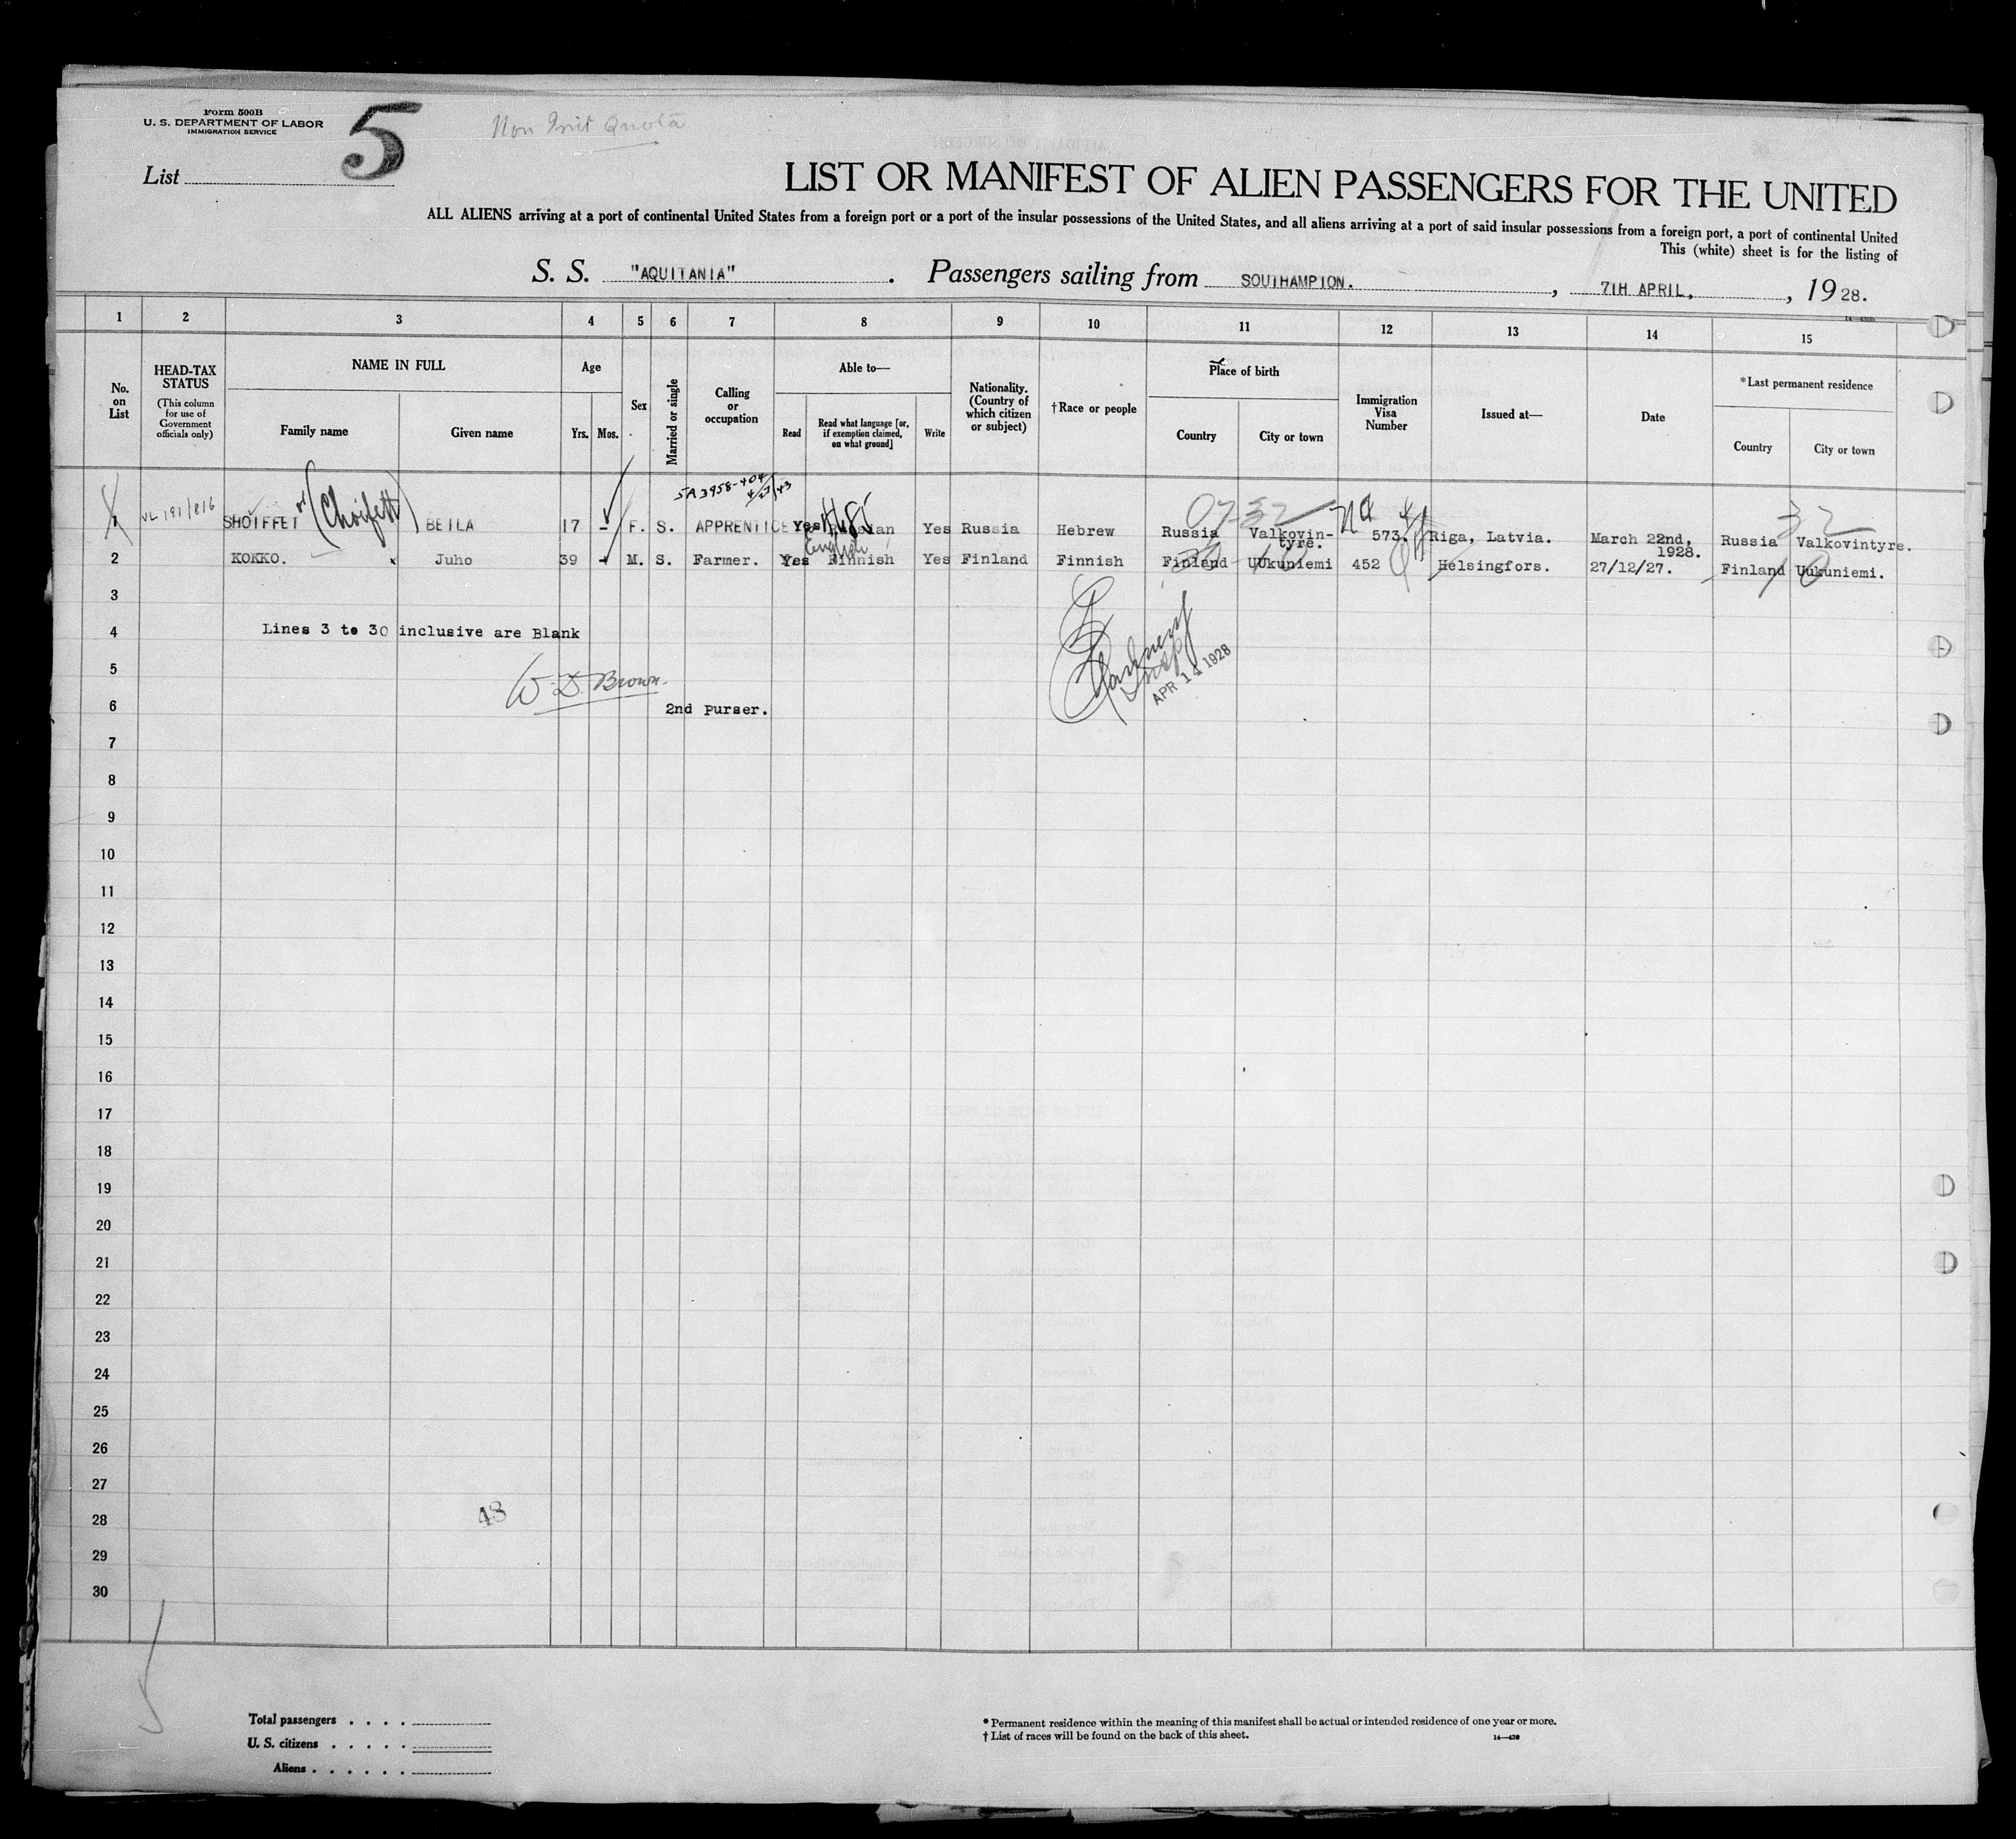 Form 500B
U. S. DEPARTMENT OF LABOR
IMMIGRATION SERVICE
List 5
Non Quota
LIST OR MANIFEST OF ALIEN PASSENGERS FOR THE UNITED
ALL ALIENS arriving at a port of continental United States from a foreign port or a port of the insular possessions of the United States, and all aliens arriving at a port of said insular possessions from a foreign port, a port of continental United
This (white) sheet is for the listing of
S. S. "AQUITANIA". Passengers sailing from SOUTHAMPTON., 7TH APRIL, , 1928.
1 2 3 4 5 6 7 8 9 10 11 12 13 14 15
No. on List
HEAD-TAX STATUS (This column for use of Government officials only)
NAME IN FULL
Family name
Given name
Age
Yrs.
Mos.
Sex
Married or single
Calling or occupation
Able to—
Read
Read what language [or, if exemption claimed, on what ground]
Write
Nationality. (Country of which citizen or subject)
†Race or people
Place of birth
Country
City or town
Immigration Visa Number
Issued at—
Date
*Last permanent residence
Country
City or town
5A3958-404
4/27/43
07-32
32
1 VL 191/816 SHOIFFET or (Choifett) BEILA 17 - F. S. APPRENTICE Yes Russian Yes Russia Hebrew Russia Valkovin-tyre. 573. Riga, Latvia. March 22nd, 1928. Russia Valkovintyre.
English
2 KOKKO. x Juho 39 - M. S. Farmer. Yes Finnish Yes Finland Finnish Finland Uukuniemi 452 Helsingfors. 27/12/27. Finland Uukuniemi.
3
4 Lines 3 to 30 inclusive are Blank
5 W. D. Brown.
APR 14 1928
6 2nd Purser.
7
8
9
10
11
12
13
14
15
16
17
18
19
20
21
22
23
24
25
26
27
28 48
29
30
Total passengers . . . .
U. S. citizens . . . . .
Aliens . . . . . .
* Permanent residence within the meaning of this manifest shall be actual or intended residence of one year or more.
† List of races will be found on the back of this sheet.
14—430